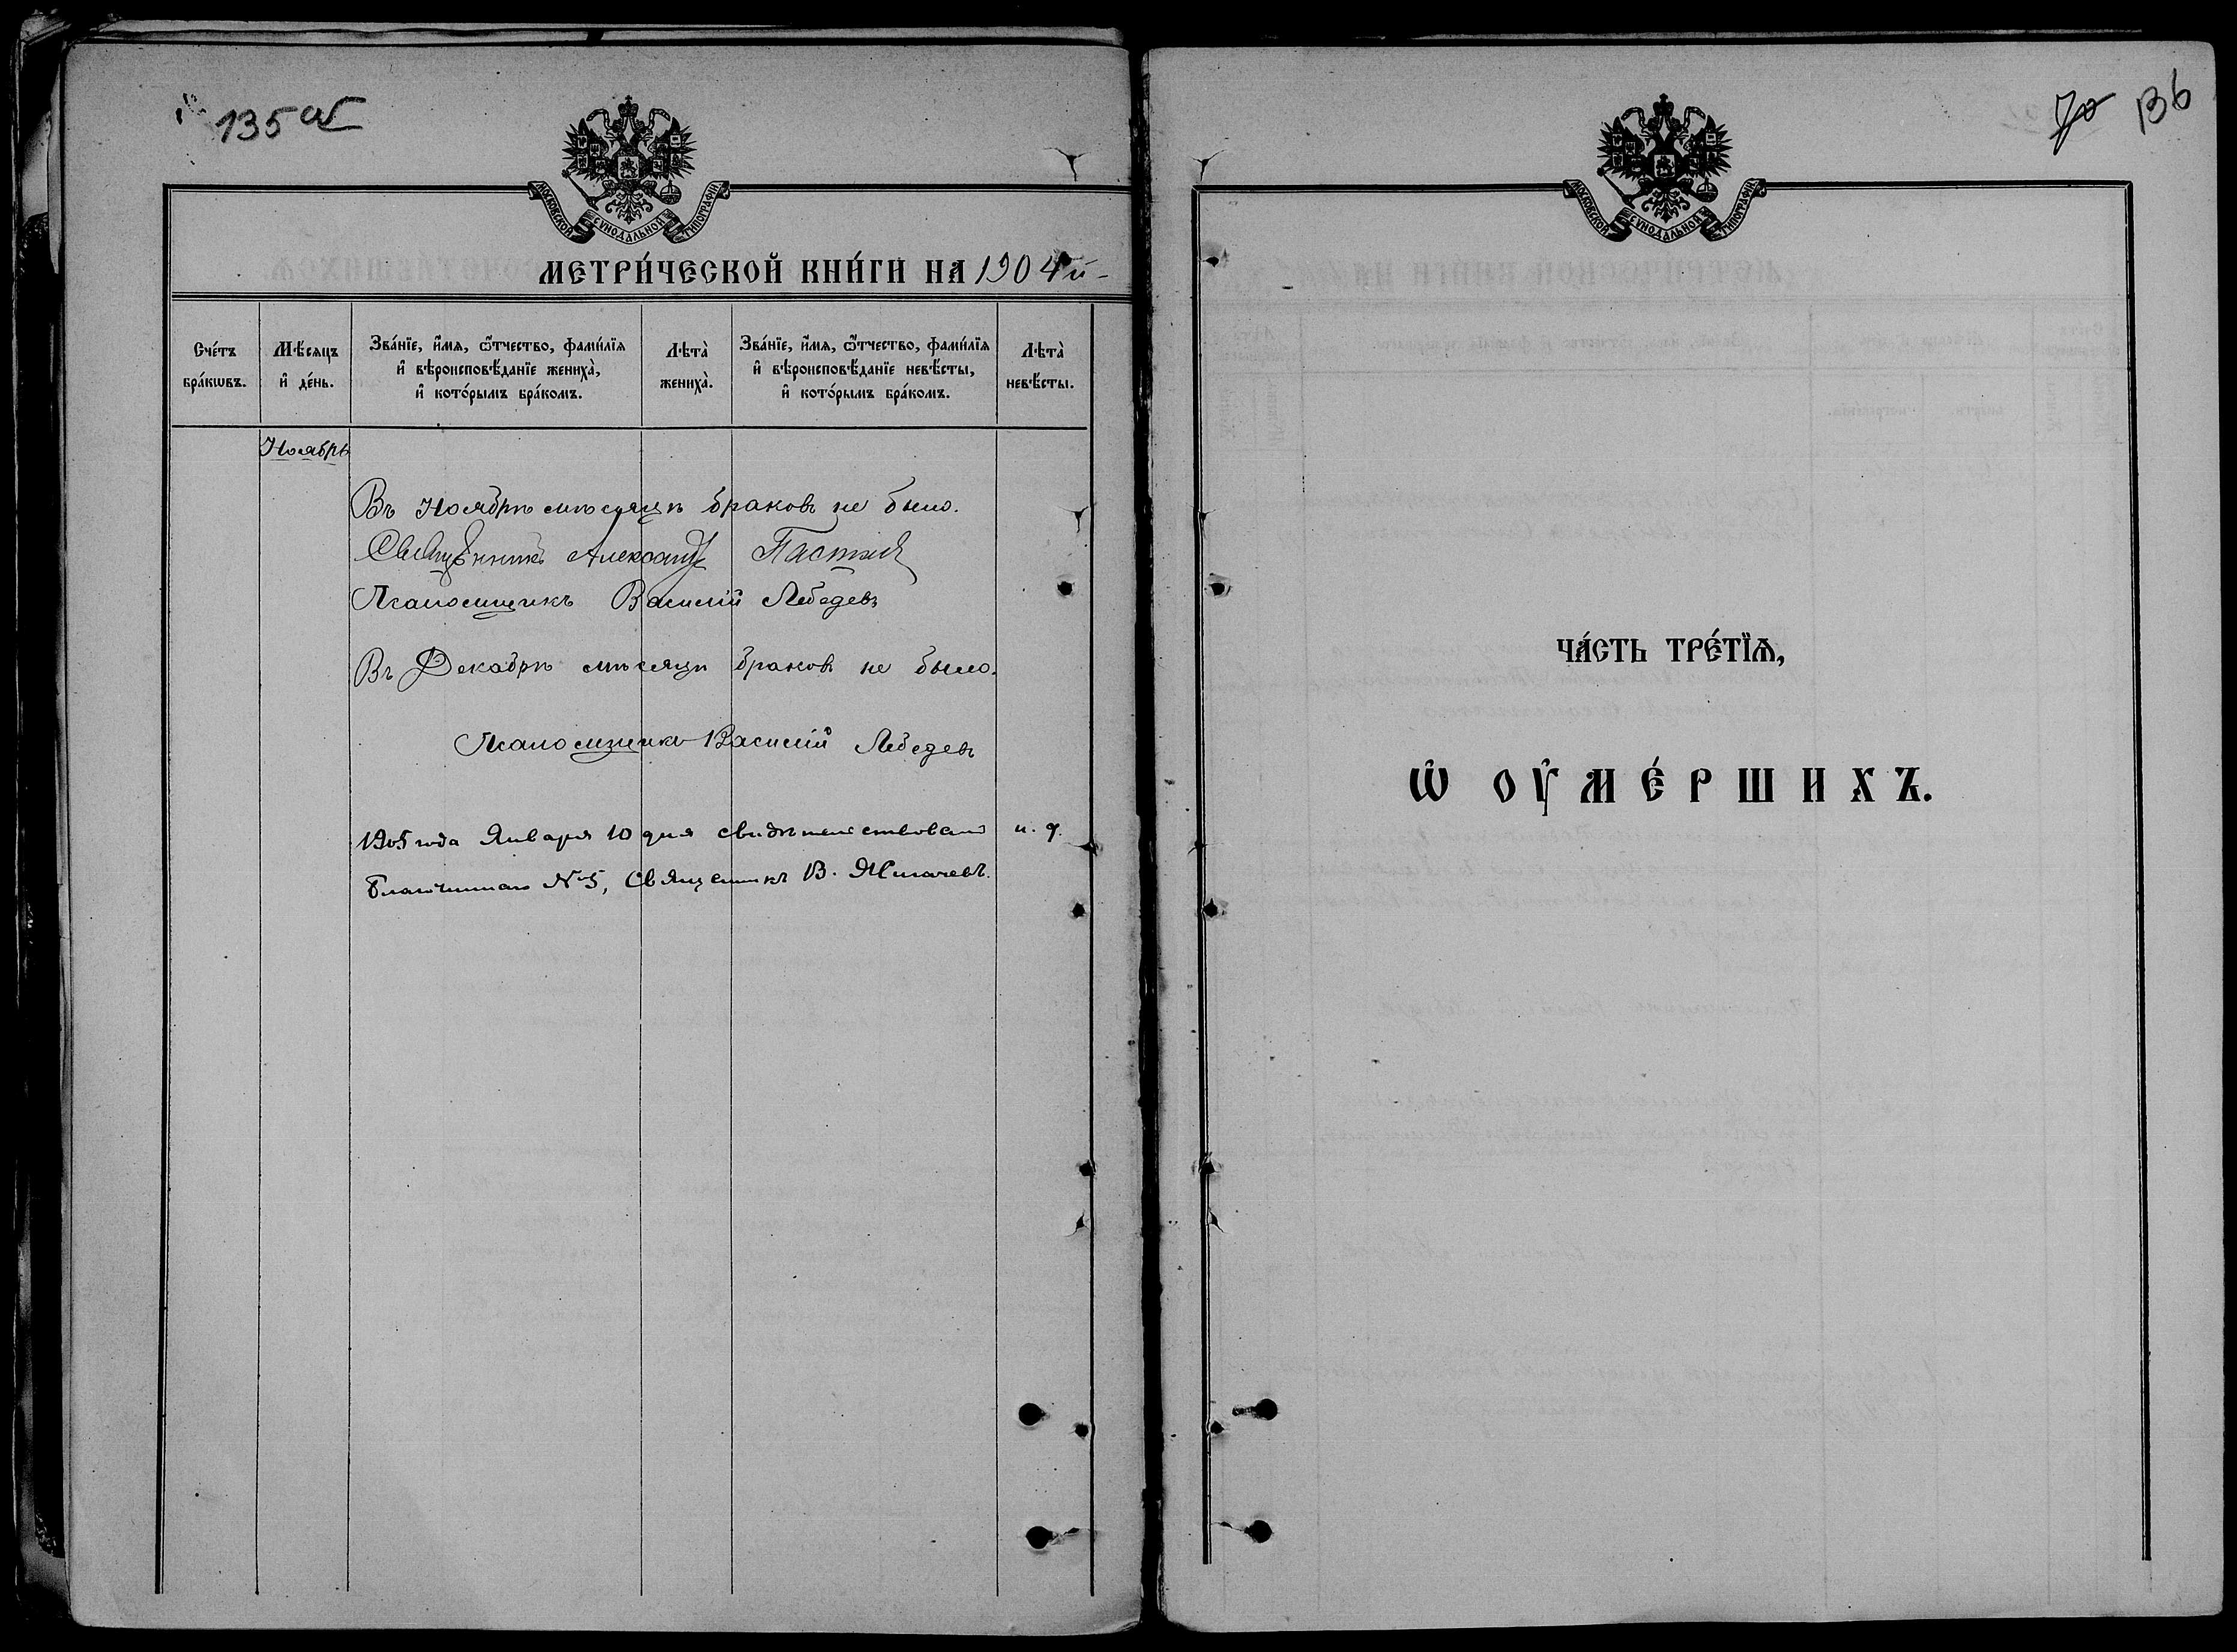 135 об
МОСКОВСКОЙ СѴНОДАЛЬНОЙ ТИПОГРАФІИ
МЕТРИ́ЧЕСКОЙ КНИ́ГИ НА 1904 й
Сче́тъ бра́кѡвъ.
Мѣ́сѧцъ и҆ де́нь.
Зва́нїе, и҆́мѧ, ѻ҆́тчество, фами́лїѧ
и҆ вѣроисповѣ́данїе жениха̀,
и҆ кото́рымъ бра́комъ.
Лѣта̀ жениха̀.
Зва́нїе, и҆́мѧ, ѻ҆́тчество, фами́лїѧ
и҆ вѣроисповѣ́данїе невѣ́сты,
и҆ кото́рымъ бра́комъ.
Лѣта̀ невѣ́сты.
Ноябрь
Въ Ноябрѣ мѣсяцѣ браковъ не было.
Священникъ Александр
Псаломщикъ Василій Лебедевъ
Въ Декабрѣ мѣсяцѣ браковъ не было.
Псаломщикъ Василій Лебедевъ
1905 года Января 10 дня свидѣтельствовалъ и. д.
Благочиннаго № 5, Священникъ В.
70 136
МОСКОВСКОЙ СѴНОДАЛЬНОЙ ТИПОГРАФІИ
ЧА́СТЬ ТРЕ́ТЇѦ,
Ѡ҆ ОУ҆МЕ́РШИХЪ.